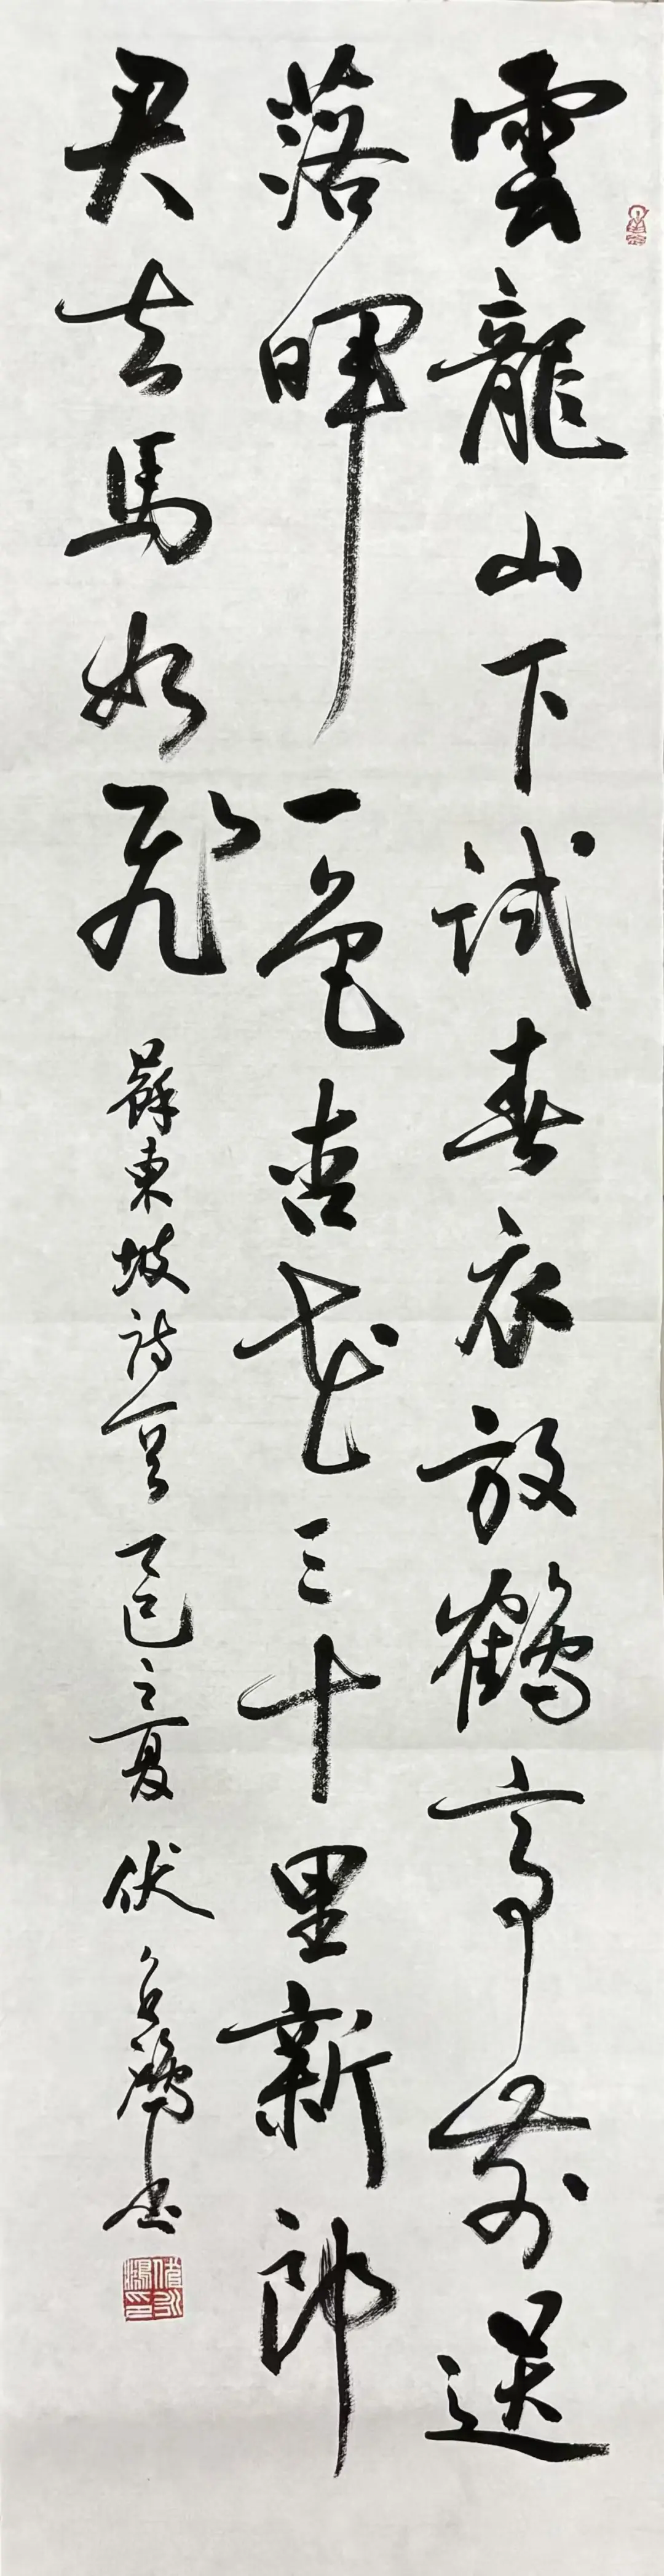 雲龍山下試春衣放鶴亭前送
落暉一色杏花三十里新郎
君去馬如飛 蘇東坡詩一首 乙巳之夏 伏 鴻書